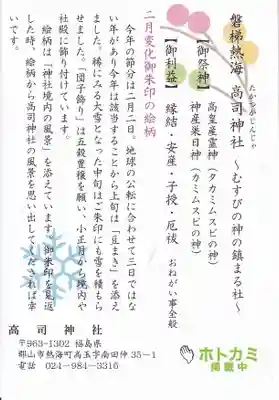 磐梯熱海 高司神社 ～むすびの神の鎮まる社～
たかつかじんじゃ
【御祭神】 高皇産霊神（タカミムスビの神）
神産巣日神（カミムスビの神）
【御利益】 縁結・安産・子授・厄祓 おねがい事全般
二月変化御朱印の絵柄
今年の節分は二月二日。地球の公転に合わせて三日ではな
い年があり今年は該当することから上旬は「豆まき」を添え
ました。稀にみる大雪となった中旬はご朱印にも雪を積もら
せました。「団子飾り」は五穀豊穣を願い、小正月から境内や
社殿に飾り付けています。
絵柄は「神社境内の風景」を添えています。御朱印を見返
した時、絵柄から高司神社の風景を思い出していただれば幸
いです。
高司神社
〒963-1302 福島県
郡山市熱海町高玉字南田仲35-1
電話 024-984-3316
ホトカミ
掲載中